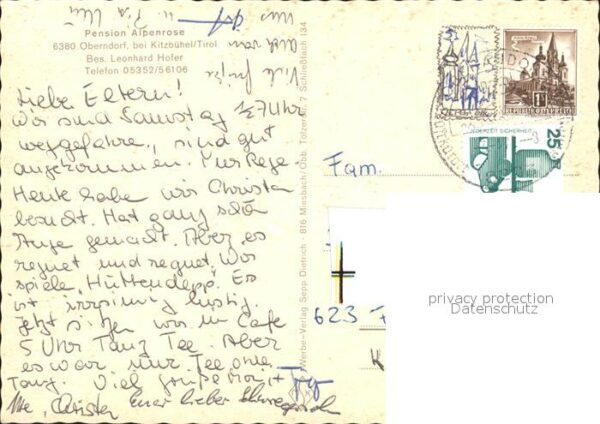 Pension Alpenrose
6380 Oberndorf, bei Kitzbühel/Tirol
Bes. Leonhard Hofer
Telefon 05352/56106
Liebe Eltern!
Wir sind Samstag ½ 7 Uhr
weggefahre, sind gut
angekommen. Nur Rege.
Heute habe wir Christa
besucht. Hat ganz schön
Auge gemacht. Aber es
regnet und regnet. Wir
spiele, Hüttendepp. Es
ist irrsinnig lustig.
Jetzt sitzen wir in Cafe
5 Uhr Tanz Tee. Aber
es war nur Tee ohne
Tanz. Viel Grüße
Ute, Christa Euer lieber Schwiegersohn
Viele Grüße
auch von
Werbe-Verlag Sepp Dietrich - 816 Miesbach/Obb. Tölzerstr. 7 Schließfach 134
REPUBLIK ÖSTERREICH
JEDERZEIT SICHERHEIT
25
Fam.
623 F
privacy protection
Datenschutz